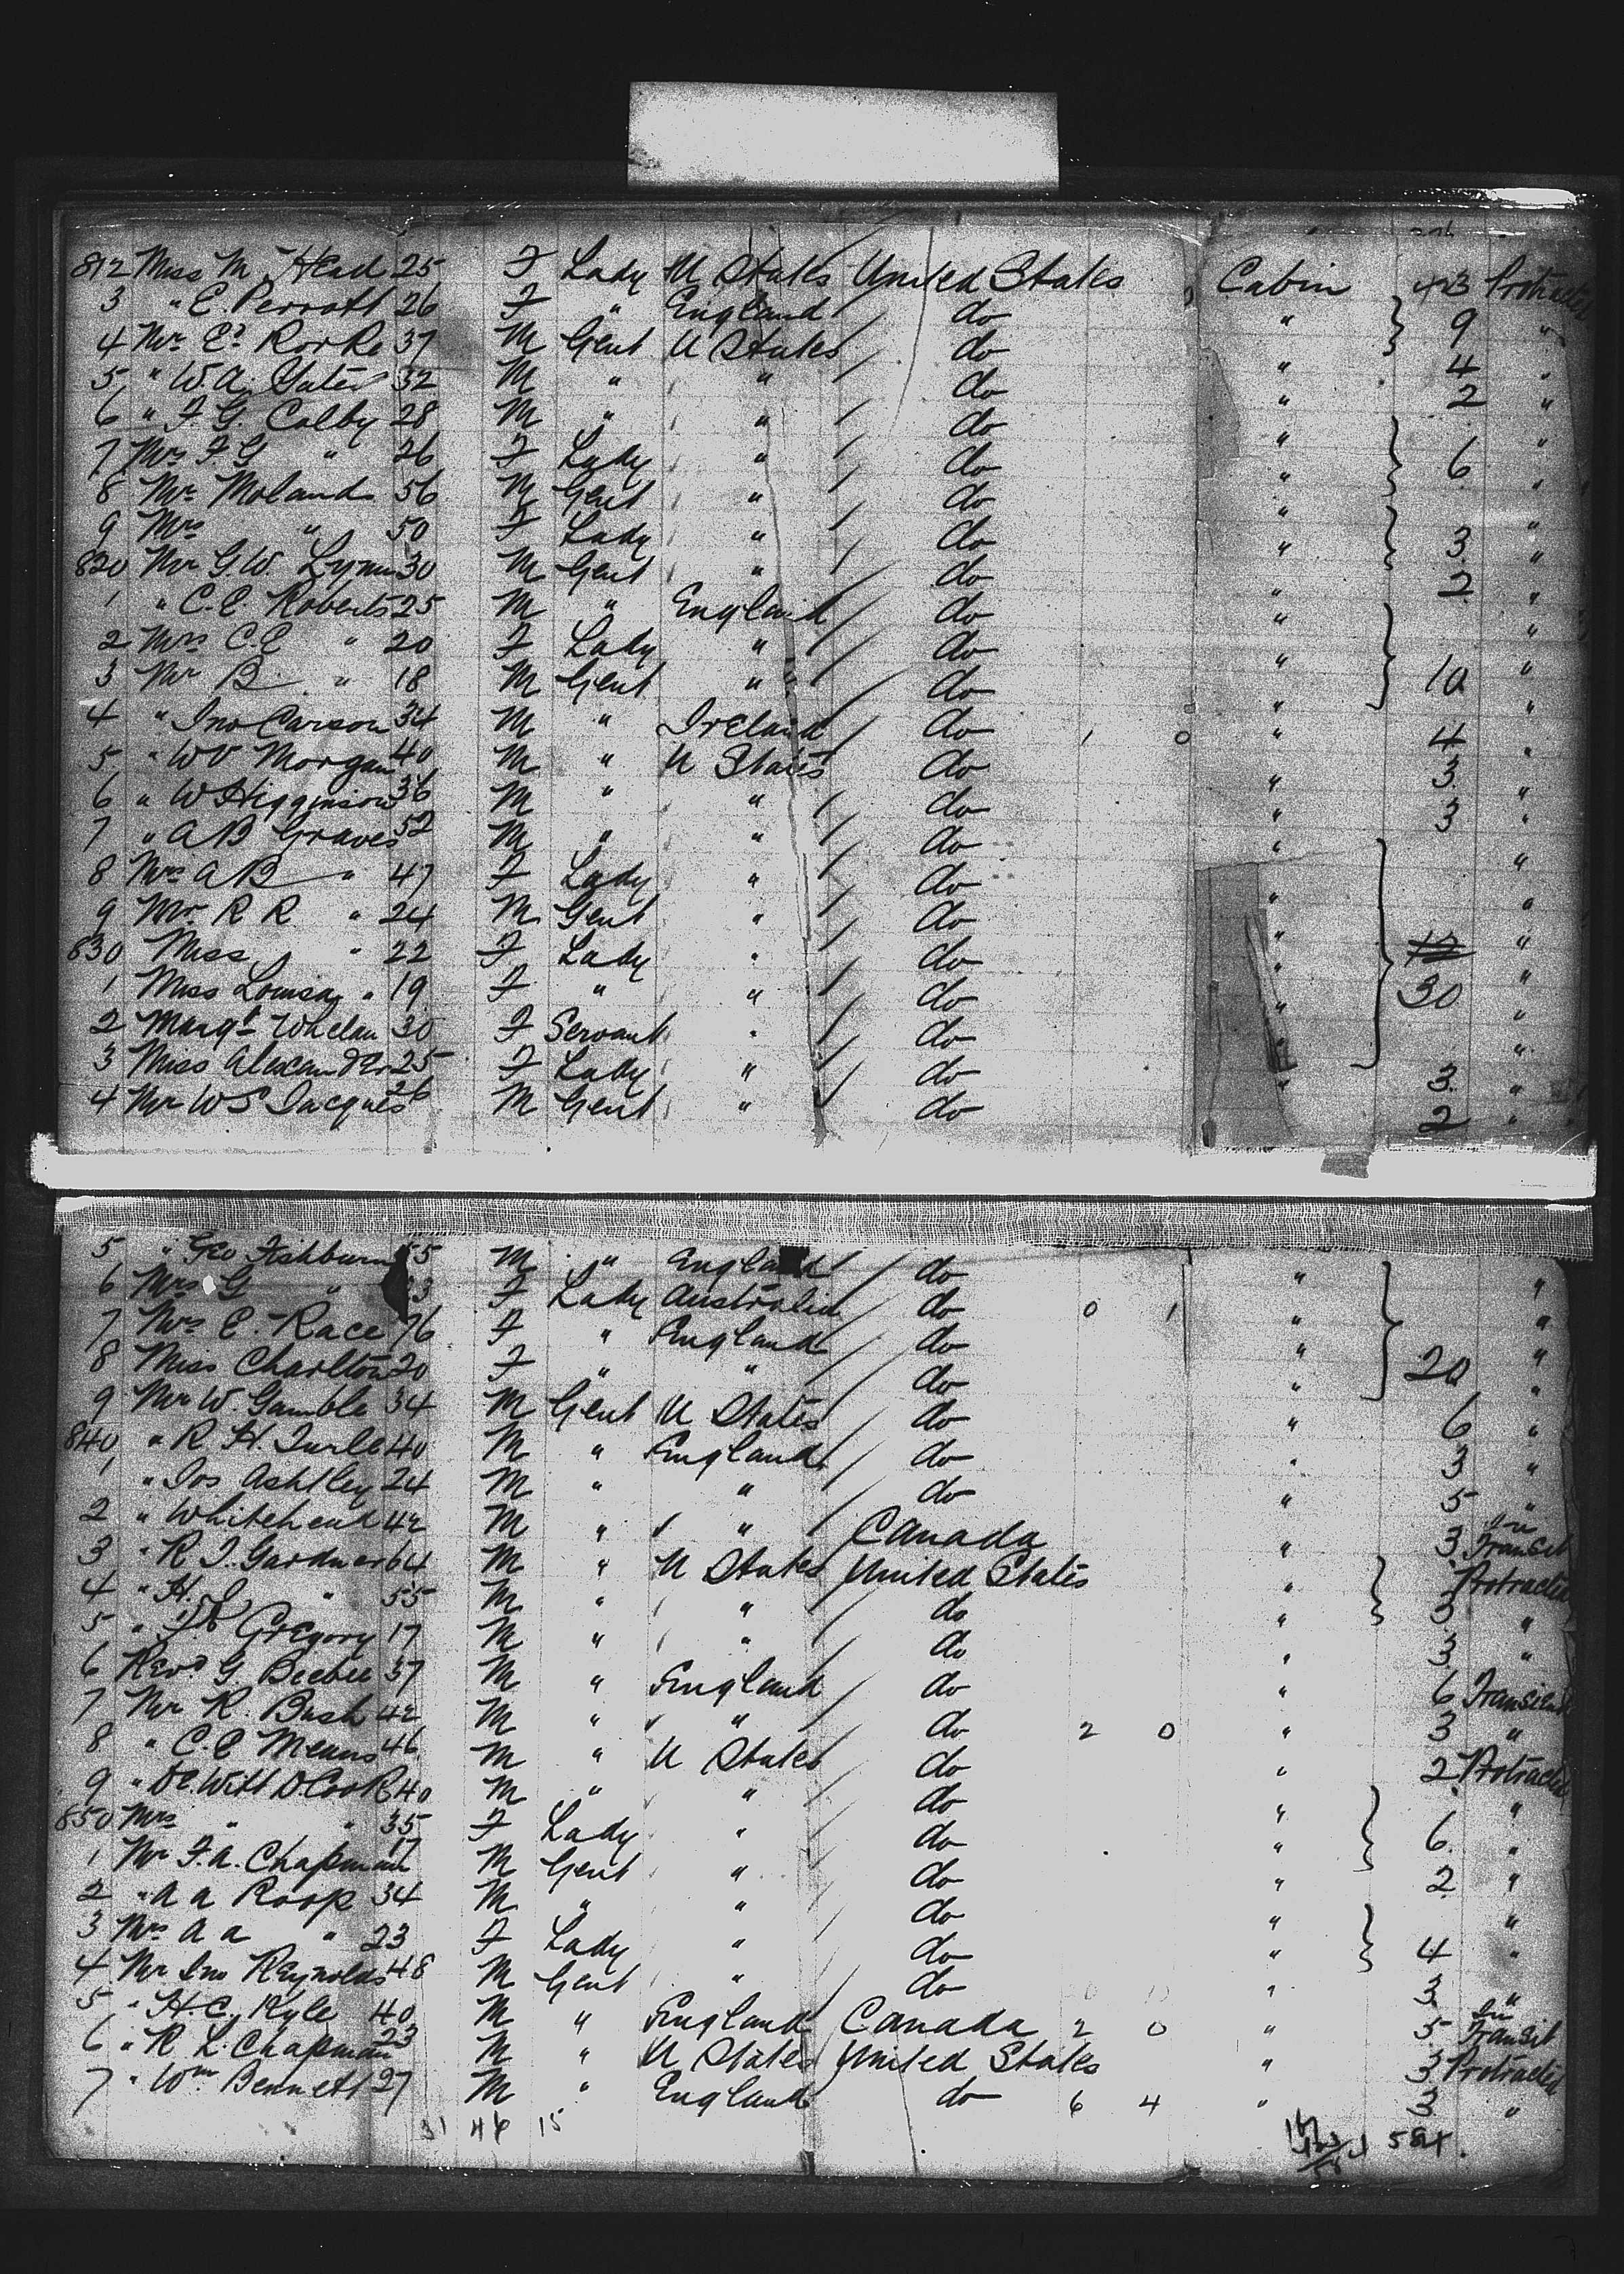 812 Miss M Head 25 F Lady U States United States Cabin 423 Protracted
3 " E. Perrott 26 F " England do " 9 "
4 Mr Ed RorKe 37 M Gent U States do " "
5 " W. A. Yates 32 M " " do " 4 "
6 " F. G. Colby 28 M " " do " 2 "
7 Mrs F G " 26 F Lady " do " 6 "
8 Mr Moland 56 M Gent " do " "
9 Mrs " 50 F Lady " do " 3 "
820 Mr G. W. Lynn 30 M Gent " do " 2 "
1 " C. E. Roberts 25 M " England do " "
2 Mrs C. E " 20 F Lady " do " 10 "
3 Mr B " 18 M Gent " do " "
4 " Jno Carson 34 M " Ireland do 1 0 " 4 "
5 " W V Morgan 40 M " U States do " 3 "
6 " W Higginson 36 M " " do " 3 "
7 " A B Graves 52 M " " do " "
8 Mrs A B " 47 F Lady " do " "
9 Mr R R " 24 M Gent " do " "
830 Miss " 22 F Lady " do " "
1 Miss Louisa " 19 F " " do " 30 "
2 Margt Whelan 30 F Servant " do " "
3 Miss Alexander 25 F Lady " do " 3 "
4 Mr W S Jacques 26 M Gent " do 2 "
5 " Geo Fishburn 55 M " England do " "
6 Mrs G " 3 F Lady Australia do 0 1 " "
7 Mrs E. Race 76 F " England do " "
8 Miss Charlton 20 F " " do " 20 "
9 Mr W. Gamble 34 M Gent U States do " 6 "
840 " R H. Turle 40 M " England do " 3 "
1 " Jos Ashtley 24 M " " do " 5 "
2 " Whitehead 42 M " " Canada " 3 In Transit
3 " R J. Gardner 64 M " U States United States " Protracted
4 " H. J " 55 M " " do " 3 "
5 " Gregory 17 M " " do " 3 "
6 Revd G. Beebee 37 M " England do " 6 Transient
7 Mr R. Bush 42 M " " do 2 0 " 3 "
8 " C. E Means 46 M " U States do " 2 Protracted
9 " De. Witt D. CooK 40 M " " do " "
850 Mrs " " 35 F Lady " do " 6 "
1 Mr F. A. Chapman 17 M Gent " do " 2 "
2 " A A Roop 34 M " " do " "
3 Mrs A A " 23 F Lady " do " 4 "
4 Mr Jno Reynolds 48 M Gent " do " 3 "
5 " H. C. Kyle 40 M " England Canada 2 0 " 5 In Transit
6 " R L. Chapman 23 M " U States United States " 3 Protracted
7 " Wm Bennett 27 M " England do 6 4 " 3 "
31 46 15 584